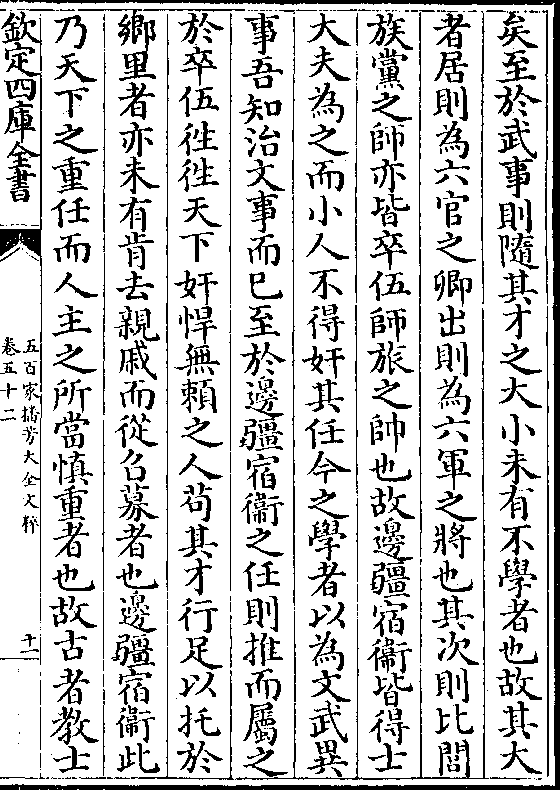 矣至於武事則隨其才之大小未有不學者也故其大
者居則為六官之卿出則為六軍之將也其次則比閭
族黨之師亦皆卒伍師旅之帥也故邊疆宿衞皆得士
大夫為之而小人不得奸其任今之學者以為文武異
事吾知治文事而已至於邊疆宿衞之任則推而屬之
於卒伍徃徃天下奸悍無賴之人茍其才行足以托於
鄉里者亦未有肯去親戚而從召募者也邊疆宿衞此
乃天下之重任而人主之所當慎重者也故古者教士
欽定四庫全書
五百家播芳大全文粹
卷五十二
十一